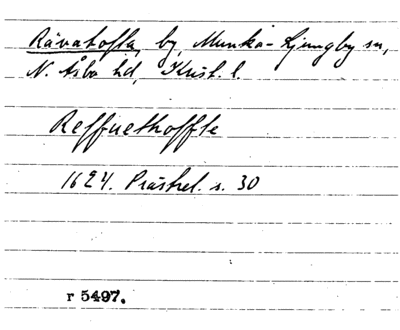 Rävatofta, by, Munka-Ljungby sn,
N. Åsbo hd, Krist. l.
Reffuethoffte
1624. Prästrel. s. 30
r 5497.